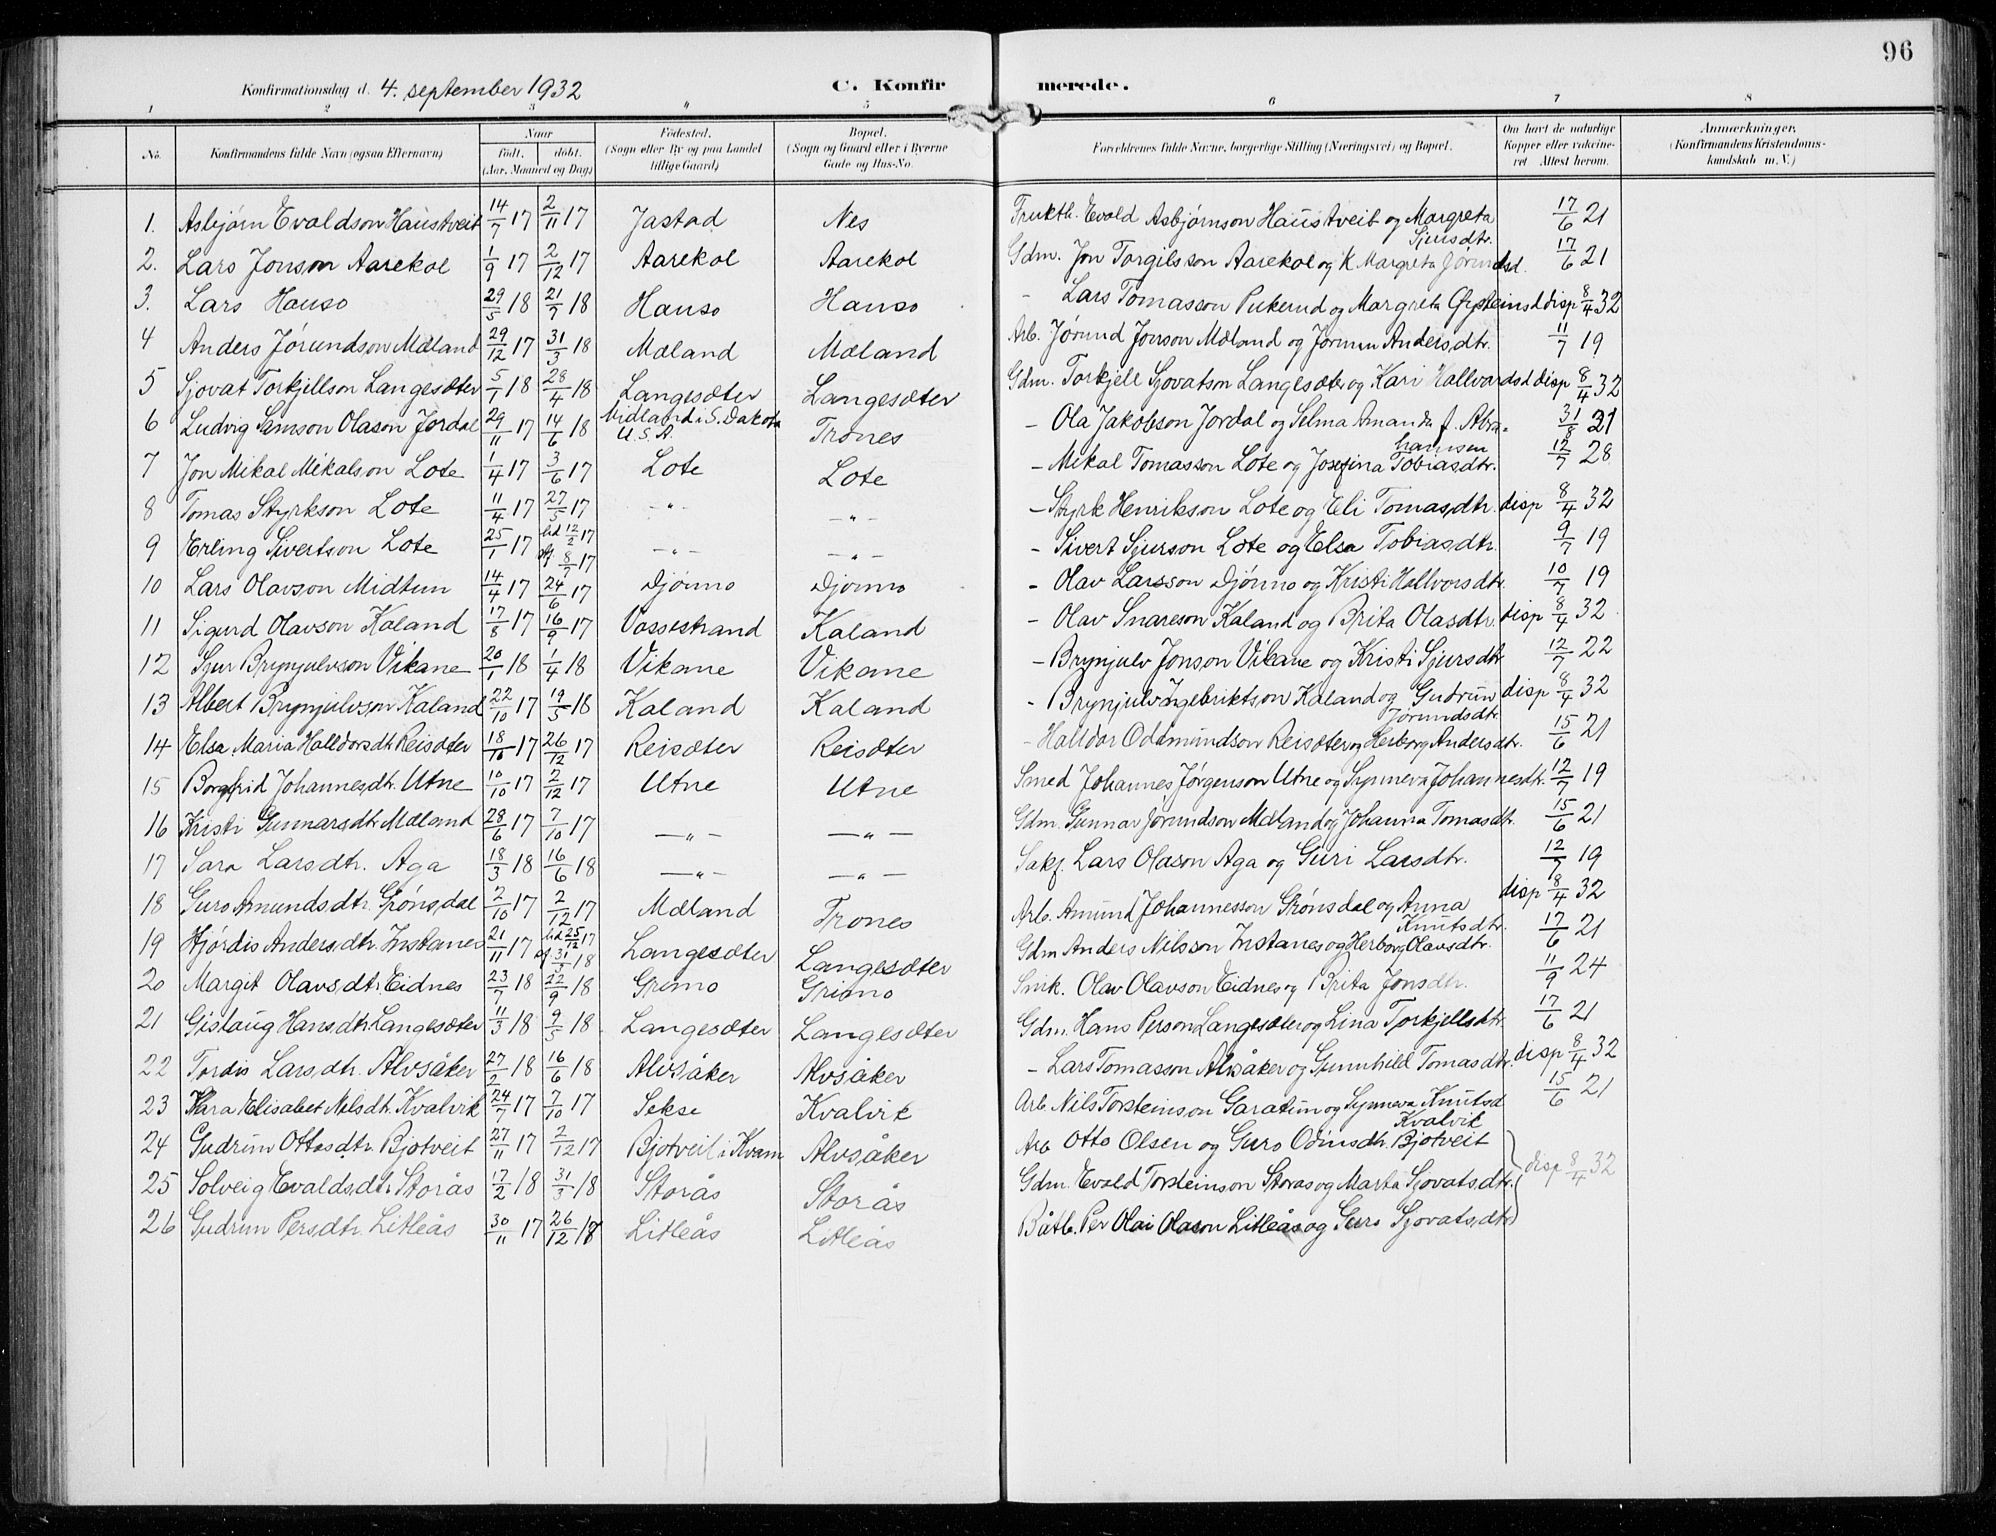 96
Konfirmationsdag d. 4. september 1932 C. Konfirmerede.
1 2 3 4 5 6 7 8
No. Konfirmandens fulde Navn (ogsaa Efternavn) Naar født. døbt. (Aar, Maaned og Dag) Fødested. (Sogn eller By og paa Landet tillige Gaard) Bopæl. (Sogn og Gaard eller i Byerne Gade og Hus-No. Forældrenes fulde Navne, borgerlige Stilling (Næringsvei) og Bopæl. Om havt de naturlige Kopper eller vakcineret Attest herom. Anmærkninger. (Konfirmandens Kristendomskundskab m. V.)
1. Asbjørn Evaldson Haustveit 14/7 17 2/11 17 Jåstad Nes Fruktb. Evald Asbjørnson Haustveit og Margreta Sjursdtr. 17/6 21
2. Lars Jonson Aarekol 1/9 17 2/12 17 Aarekol Aarekol Gdm. Jon Torgilsson Aarekol og K. Margreta Jørundsd. 17/6 21
3. Lars Hauso 29/5 18 21/7 18 Hauso Hauso - Lars Tomasson Pukerud og Margreta Øysteinsd disp 8/4 32
4 Anders Jørundson Mæland 29/12 17 31/3 18 Mæland Mæland Arb. Jørund Jonson Mæland og Jørmun Andersdtr. 11/7 19
5 Sjovat Torkjellson Langesæter 5/1 18 28/4 18 Langesæter Langesæter Gdm. Torkjell Sjovatson Langesæter og Kari Hallvardsd disp 8/4 32
6 Ludvig Samson Olason Jordal 29/11 17 14/6 18 Midland i S. Dakota U.S.A. Trones - Ola Jakobson Jordal og Selma Amanda f. Abrahamsen 31/8 21
7 Jon Mikal Mikalson Lote 1/4 17 3/6 17 Lote Lote - Mikal Tomasson Lote og Josefina Tobiasdtr. 12/7 28
8 Tomas Styrkson Lote 11/4 17 27/5 17 -"- -"- - Styrk Henrikson Lote og Eli Tomasdtr. disp 8/4 32
9 Erling Sivertson Lote 25/1 17 hd 12/2 17 stf 8/7 17 -"- -"- - Sivert Sjurson Lote og Elsa Tobiasdtr. 9/7 19
10 Lars Olavson Midtun 14/4 17 24/6 17 Djønno Djønno - Olav Larsson Djønno og Kristi Hallvorsdtr. 10/7 19
11 Sigurd Olavson Kaland 17/8 17 16/9 17 Vossestrand Kaland - Olav Snareson Kaland og Brita Olasdtr. disp 8/4 32
12 Sjur Brynjulvson Vikane 20/1 18 1/4 18 Vikane Vikane - Brynjulv Jonson Vikane og Kristi Sjursdtr 12/7 22
13 Albert Brynjulvson Kaland 22/10 17 19/5 18 Kaland Kaland - Brynjulv Ingebriktson Kaland og Gudrun Jørundsdtr. disp 8/4 32
14 Elsa Maria Halldorsdtr Reisæter 18/10 17 26/12 17 Reisæter Reisæter - Halldor Oddmundson Reisæter og Herborg Andersdtr. 15/6 21
15 Borghild Johannesdtr. Utne 10/10 17 2/12 17 Utne Utne Smed Johannes Jørgenson Utne og Synneva Johannesdtr. 12/7 19
16 Kristi Gunnarsdtr Mæland 28/6 17 7/10 17 -"- -"- Gdm. Gunnar Jørundson Mæland og Johanna Tomasdtr. 15/6 21
17 Sara Larsdtr. Aga 18/3 18 16/6 18 -"- -"- Sakf. Lars Olason Aga og Guri Larsdtr. 12/7 19
18 Guro Amundsdtr. Grønsdal 2/10 17 2/12 17 Mæland Trones Arb. Amund Johannesson Grønsdal og Anna Knutsdtr. disp 8/4 32
19 Hjørdis Andersdtr. Instanes 21/11 17 hd 25/12 17 stf 31/3 18 Langesæter Langesæter Gdm Anders Nilsson Instanes og Herborg Olavsdtr. 17/6 21
20 Margit Olavsdtr. Eidnes 23/7 18 22/9 18 Grimo Grimo Snik. Olav Olavson Eidnes og Brita Jonsdtr. 11/9 24
21 Gislaug Hansdtr. Langesæter 11/3 18 9/5 18 Langesæter Langesæter Gdm. Hans Person Langesæter og Lina Torkjellsdtr 17/6 21
22 Tordis Larsdtr. Alvsåker 27/2 18 16/6 18 Alvsåker Alvsåker - Lars Tomasson Alvsåker og Gunnhild Tomasdtr. disp 8/4 32
23 Elisabet Nilsdtr. Kvalvik 24/7 17 7/10 17 Sekse Kvalvik Arb. Nils Torsteinson Garatun og Synneva Knutsd Kvalvik 15/6 21
24 Gudrun Ottosdtr. Bjotveit 27/11 17 2/12 17 Bjotveit i Kvam Alvsåker Arb Otto Olsen og Guro Odinsdtr. Bjotveit
25 Solveig Evaldsdtr. Storås 17/2 18 31/3 18 Storås Storås Gdm. Evald Torsteinson Storås og Marta Sjovatsdtr. disp 8/4 32
26 Gudrun Persdtr. Litleås 30/11 17 26/12 17 Litleås Litleås Båtb. Per Olai Olason Litleås og Guro Sjovatsdtr